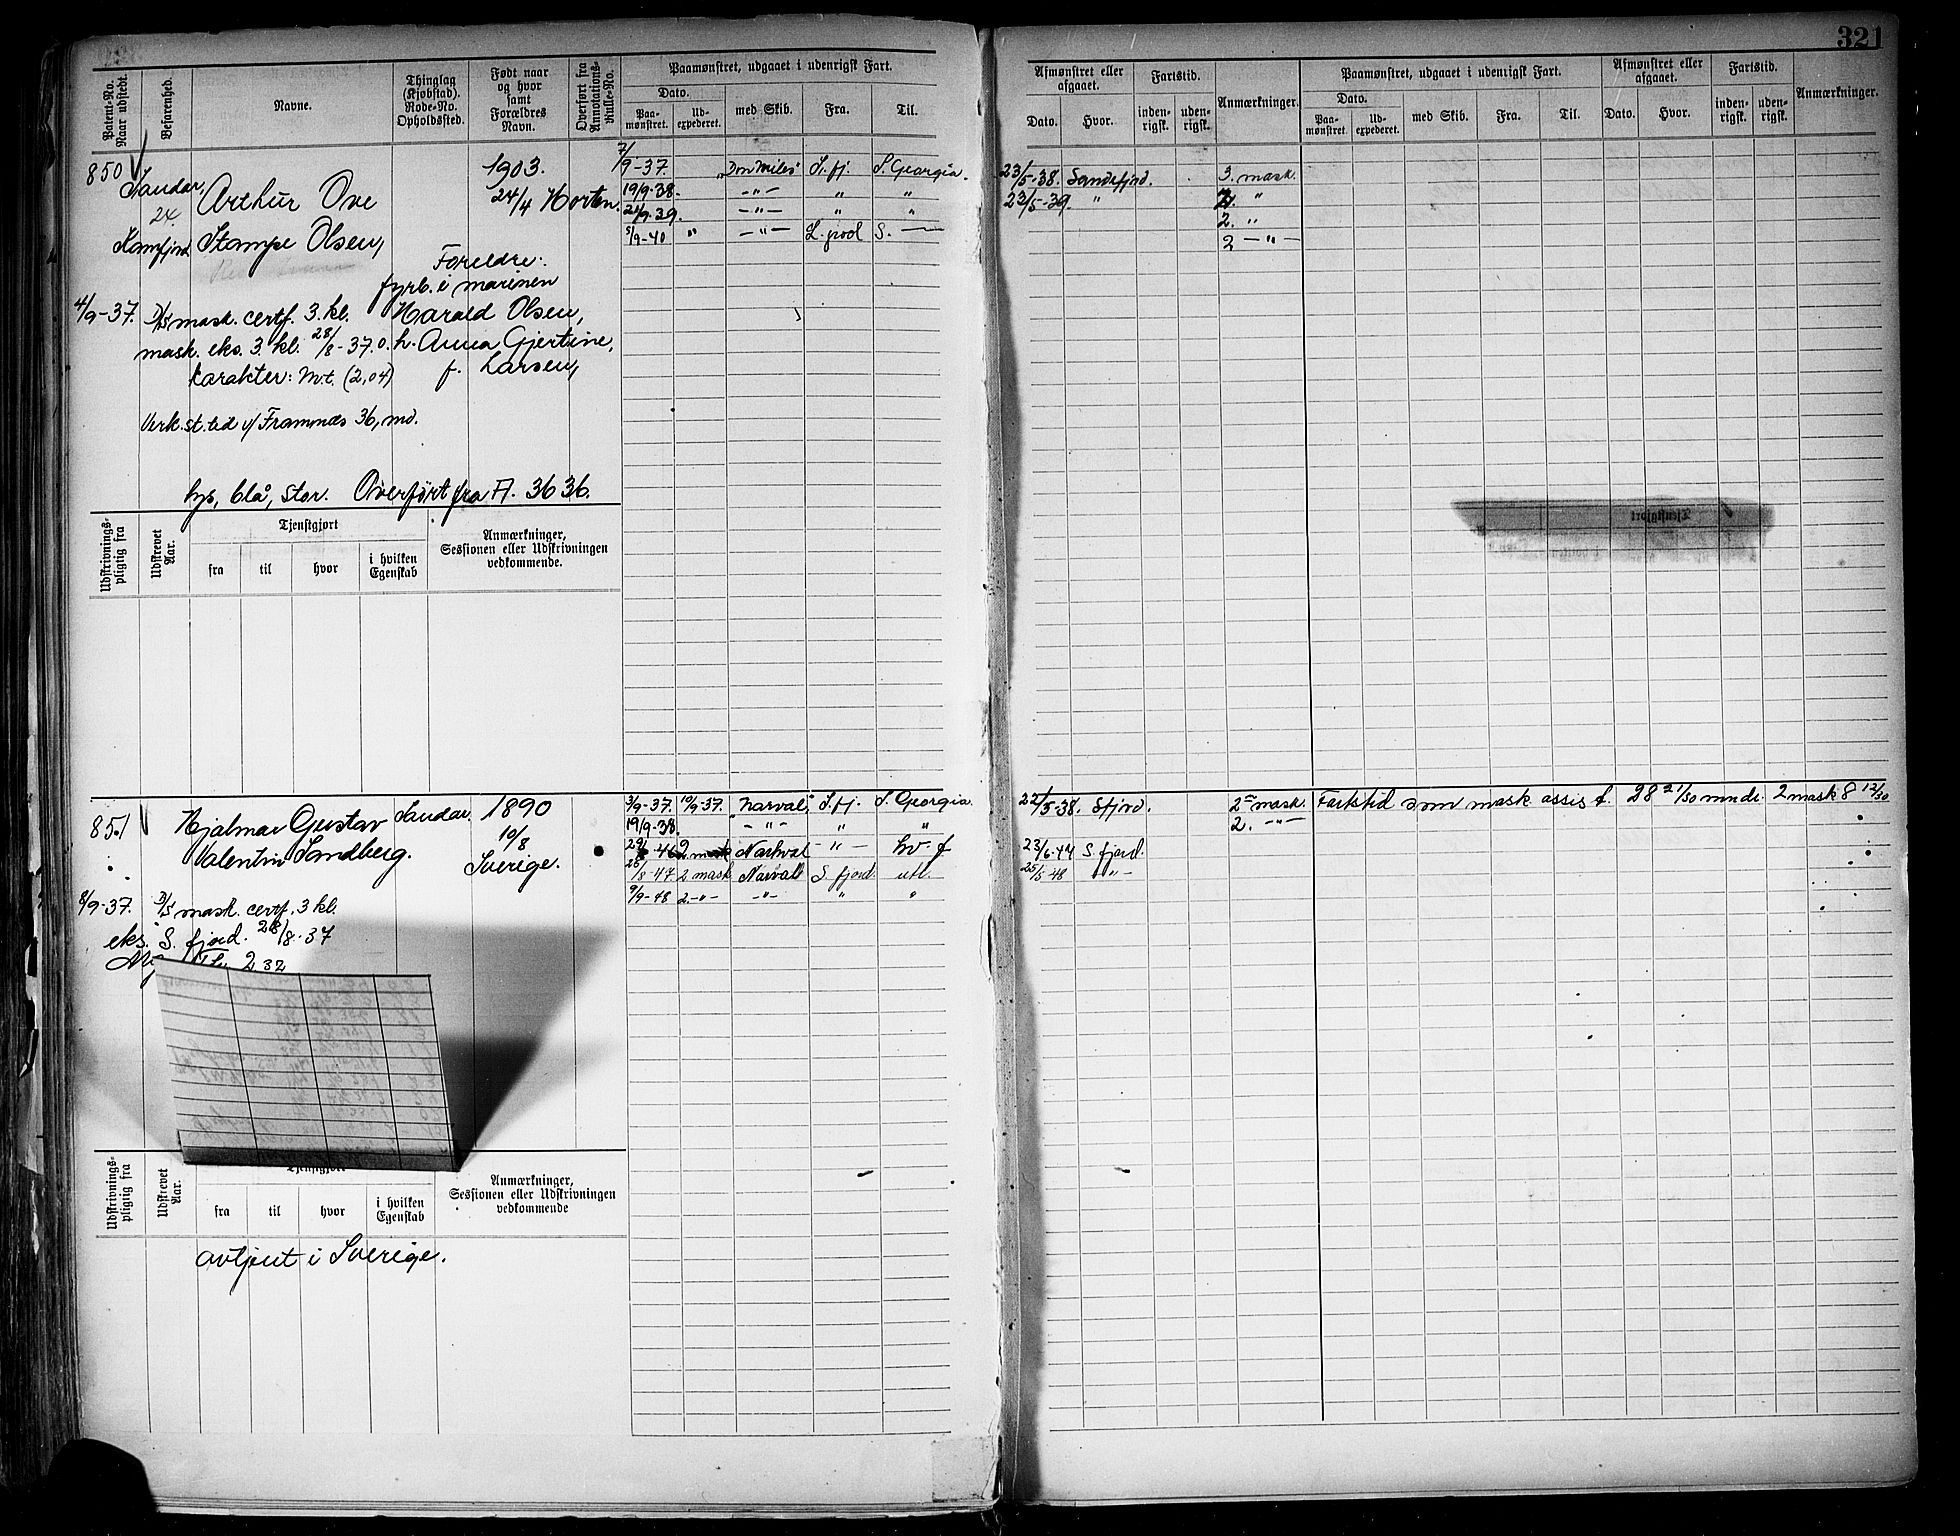 321
Patent-No. Naar udstedt.
Befarenhed.
Navne.
Thinglag (Kjøbstad). Rode-No. Opholdssted.
Født naar og hvor samt Forældres Navn.
Overført fra Annotations-Rulle-No.
Paamønstret, udgaaet i udenrigsk Fart.
Dato.
Paa-mønstret.
Ud-expederet.
med Skib.
Fra.
Til.
Afmønstret eller afgaaet.
Dato.
Hvor.
Fartstid.
inden-rigsk.
uden-rigsk.
Anmærkninger.
Paamønstret, udgaaet i udenrigsk Fart.
Dato.
Paa-mønstret.
Ud-expederet.
med Skib.
Fra.
Til.
Afmønstret eller afgaaet.
Dato.
Hvor.
Fartstid.
inden-rigsk.
uden-rigsk.
Anmærkninger.
850 Sandar, 1903. 7/9-37. "Don Miles" S.fj. S. Georgia. 23/5-38. Sandefjord. 3. mask.
24. Arthur Ove 24/4 Horten. 19/9-38. -"- " " 23/5-39 " "
21/9-39. -"- " " 2. "
Kamfjord Stampe Olsen, 5/9-40 " -"- L.pool S. — 2 -"-
Foreldre:
fyrb. i marinen
4/9-37. D/S mask. certf. 3. kl. Harald Olsen,
mask. eks. 3. kl. 28/8-37. o. h. Anna Gjertine,
Karakter: M.t. (2,04) f. Larsen,
Verk.st.tid v/ Framnæs 36, md.
lys, blå, stor. Overført fra A. 3636.
Udskrivnings-pligtig fra
Udskrevet Aar.
Tjenstgjort
fra
til
hvor
i hvilken Egenskab
Anmærkninger, Sessionen eller Udskrivningen vedkommende.
851 Hjalmar Gustav Sandar. 1890 3/9-37. 10/9-37. "Narval" S.fj. S. Georgia 22/5-38. Sfjord. 2en mask. Fartstid som mask assis t. 28 21/30 mndr. 2 mask 8 12/30
10/8 19/9-38. -"- " " 2. -"-
Valentin Sandberg. Sverige. 46 2 mask Narhval -"- hv. f 23/6-47 S. fjord.
25/8-47 2 mask Narval S. fjord utl. 25/5-48 -"-
9/9-48 2.-"- -"- " "
8/9-37. D/S mask. certf. 3 kl.
eks. S. fjord. 28/8-37
2 32
Udskrivnings-pligtig fra
Udskrevet Aar.
Tjenstgjort
fra
til
hvor
i hvilken Egenskab
Anmærkninger, Sessionen eller Udskrivningen vedkommende
avtjent i Sverige.